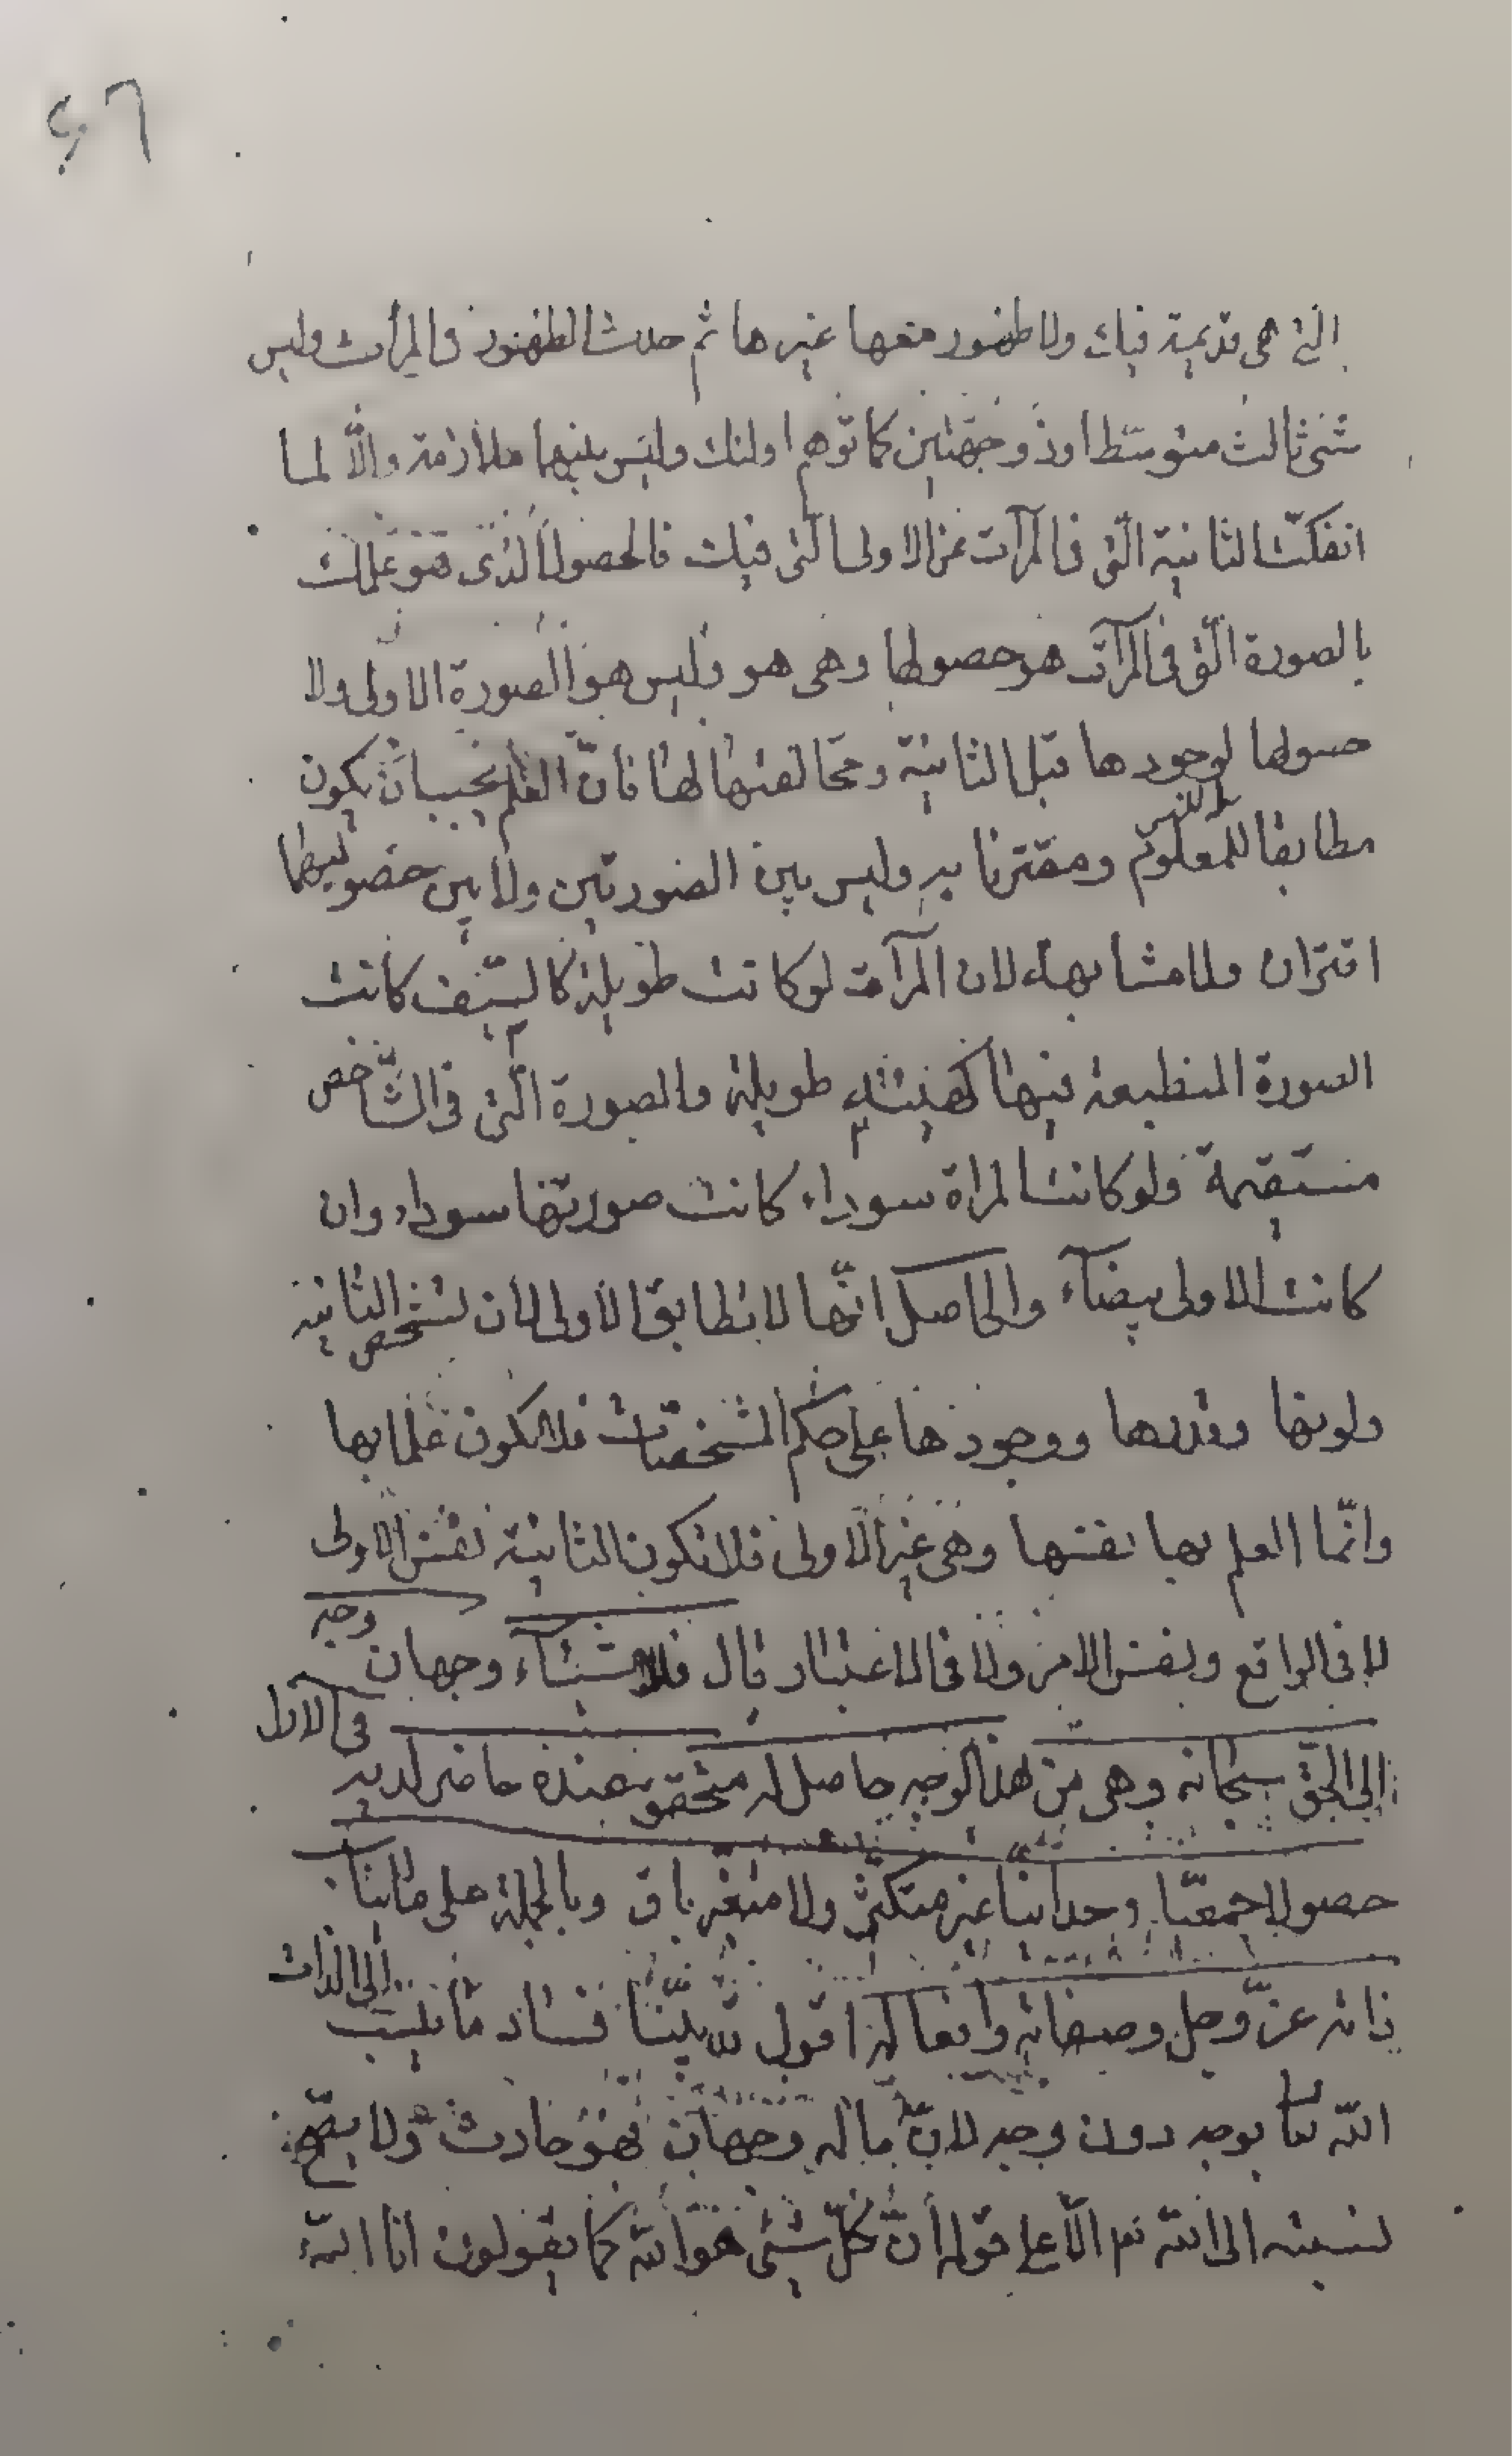 ٤٦
التى هى قديمة فيك ولا ظهور معها غيرها ثم حدث الظهور فى المرآت وليس
شئ ثالث متوسطا او ذو جهتين كما توهم اولئك وليس بينهما ملازمة والّا لما
انفكّت الثانية الّتى فى المرآت عن الاولى الّتى فيك فالحصول الذى هو علمك
بالصورة الّتى فى المرآت هو حصولها وهى هو وليس هو الصورة الاولى ولا
حصولها لوجودها قبل الثانية ومخالفتها لها فانّ العلم يجب ان يكون
مطابقا للمعلوم ومقترنا به وليس بين الصورتين ولا بين حصوليهما
اقتران ولا مشابهة لان المرآت لو كانت طويلة كالسّيف كانت
الصورة المنطبعة فيها كهيئته طويلة والصورة الّتى فى الشّاخص
مستقيمة ولو كانت المراة سوداء كانت صورتها سوداء وان
كانت الاولى بيضآء والحاصل انّها لا تطابق الاولى لان تشخص الثانية
ولونها وقدرها ووجودها على حكم المشخصات فلا يكون علما بها
وانّما العلم بها نفسها وهى غير الاولى فلا تكون الثانية نفس الاولى
لا فى الواقع ونفس الامر ولا فى الاعتبار قال فللاشيآء وجهان وجه
الى الحقّ سبحانه وهى من هذا الوجه حاصل له متحقق عنده حاضر لديه فى الازل
حصولا جمعيّا وحدانيّا غير متكثّر ولا متغيّر باق وبالجملة على ما يناسب
ذاته عزّ وجل وصفاته وافعاله اقول قد بيّنّا فساد ما ينسب الى الذات
اللّه تعا بوجه دون وجه لانّ ما له وجهان فهو حادث ولا يصحّ
نسبته الى اللّه تعا الّا على قوله أنّ كلّ شئ هو اللّه كما يقولون انا اللّه